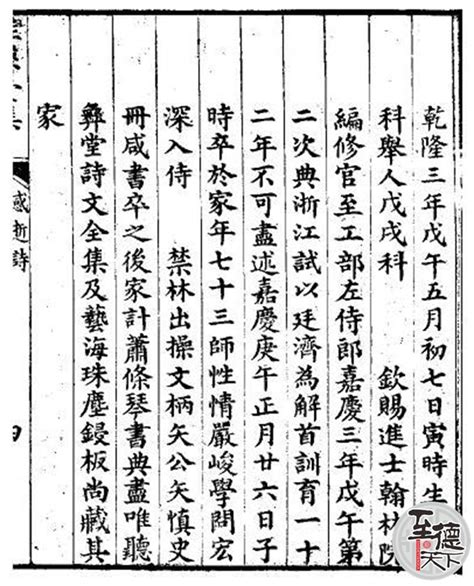 乾隆三年戊午五月初七日寅時生
科舉人戊戌科 欽賜進士翰林院
編修官至工部左侍郎嘉慶三年戊午第
二次典浙江試以廷濟為解首訓育一十
二年不可盡述嘉慶庚午正月廿六日子
時卒於家年七十三師性情嚴峻學問宏
深入侍 禁林出操文柄矢公矢慎史
冊咸書卒之後家計蕭條琴書典盡唯聽
彝堂詩文全集及藝海珠塵鋟板尚藏其
家
感逝詩
四
至德天下